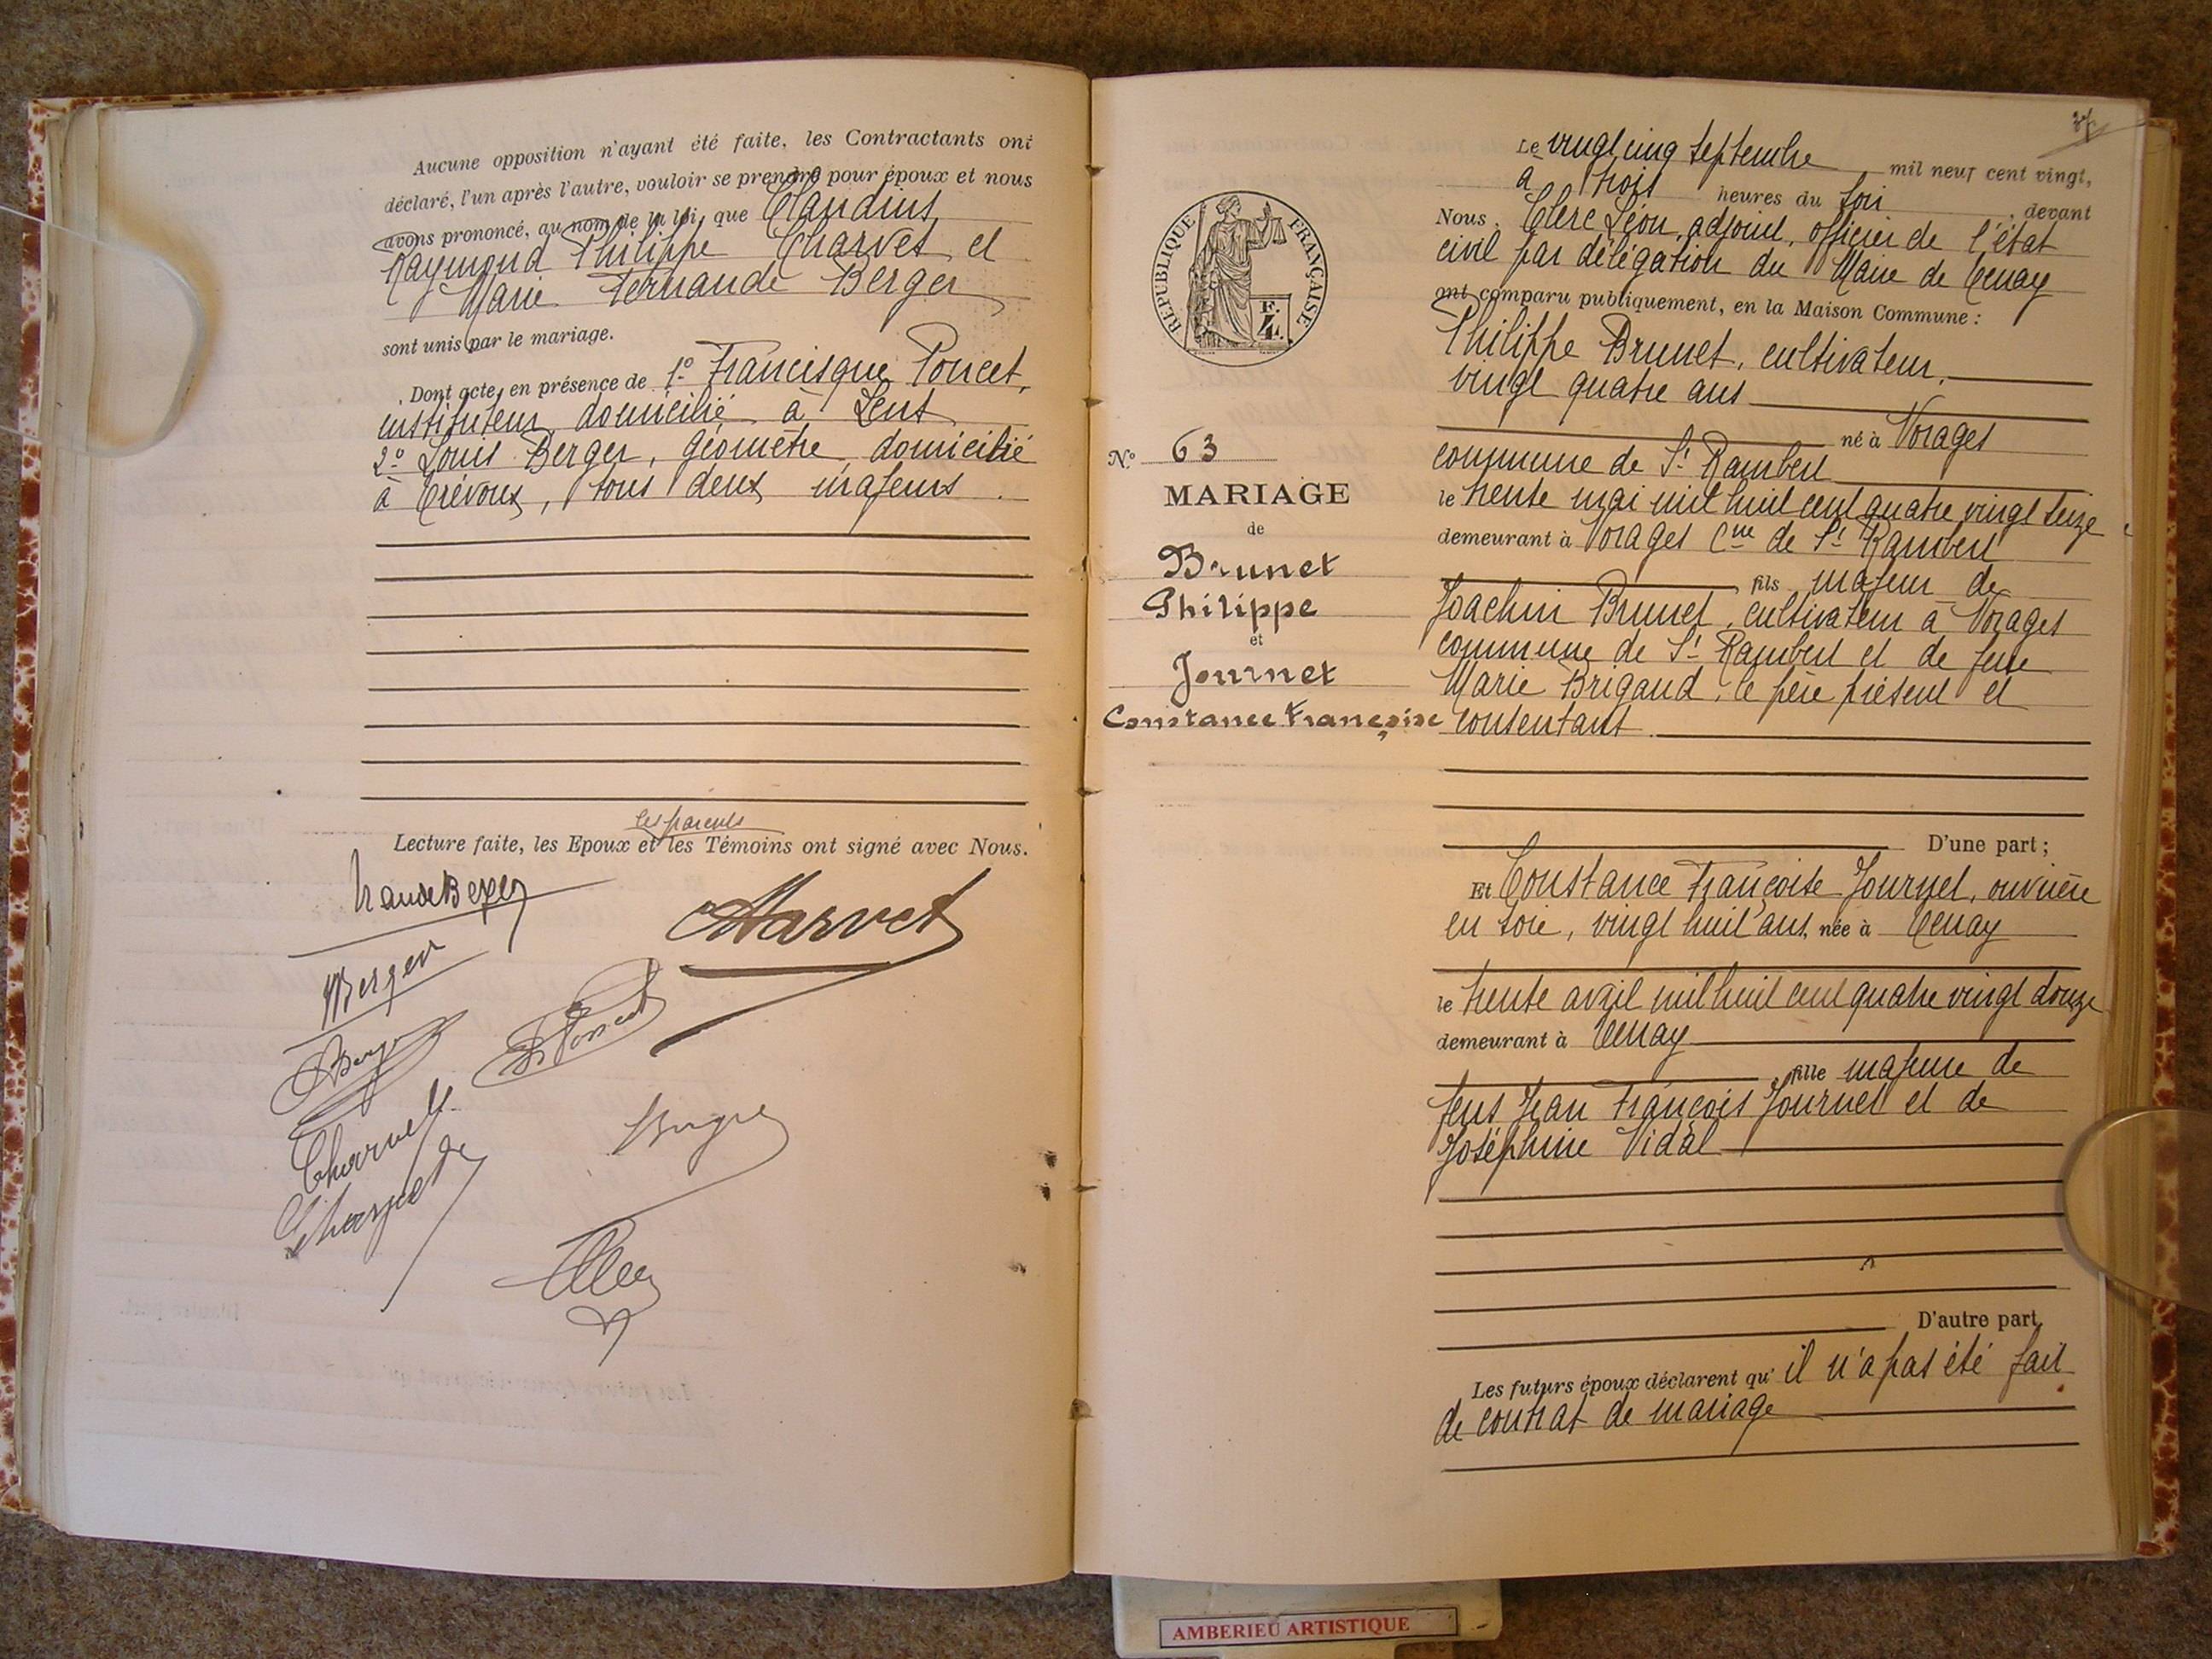 Aucune opposition n'ayant été faite, les Contractants ont
déclaré, l'un après l'autre, vouloir se prendre pour époux et nous
avons prononcé, au nom de la loi, que Claudius
Raymond Philippe Charvet et
Marie Fernande Berger
sont unis par le mariage.
Dont acte, en présence de 1º Francisque Poncet,
instituteur domicilié à Lent
2º Louis Berger, géomètre, domicilié
à Trévoux, tous deux majeurs.
les parents
Lecture faite, les Epoux et les Témoins ont signé avec Nous.
Charvet
Berger
Poncet
Berger
Charvet
Berger
37
Le vingt cinq septembre mil neuf cent vingt,
à trois heures du soir, devant
Nous, Clerc Léon, adjoint, officier de l'état
civil par délégation du Maire de Tenay
ont comparu publiquement, en la Maison Commune :
Philippe Brunet, cultivateur,
vingt quatre ans
né à Vorages
commune de St Rambert
le trente mai mil huit cent quatre vingt seize
demeurant à Vorages Cne de St Rambert
fils majeur de
Joachin Brunet, cultivateur à Vorages
commune de St Rambert et de feue
Marie Brigand, le père présent et
consentant.
D'une part ;
Et Constance Françoise Journet, ouvrière
en soie, vingt huit ans, née à Tenay
le trente avril mil huit cent quatre vingt douze
demeurant à Tenay
fille majeure de
feus Jean François Journet et de
Joséphine Vidal
D'autre part,
Les futurs époux déclarent qu'il n'a pas été fait
de contrat de mariage
RÉPUBLIQUE FRANÇAISE
F.
4.
N.º 63
MARIAGE
de
Brunet
Philippe
et
Journet
Constance Françoise
AMBERIEU ARTISTIQUE